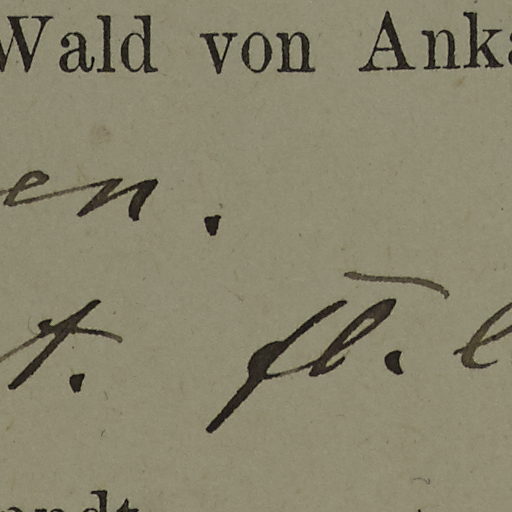 Wald von Anka
en.
t. fl.